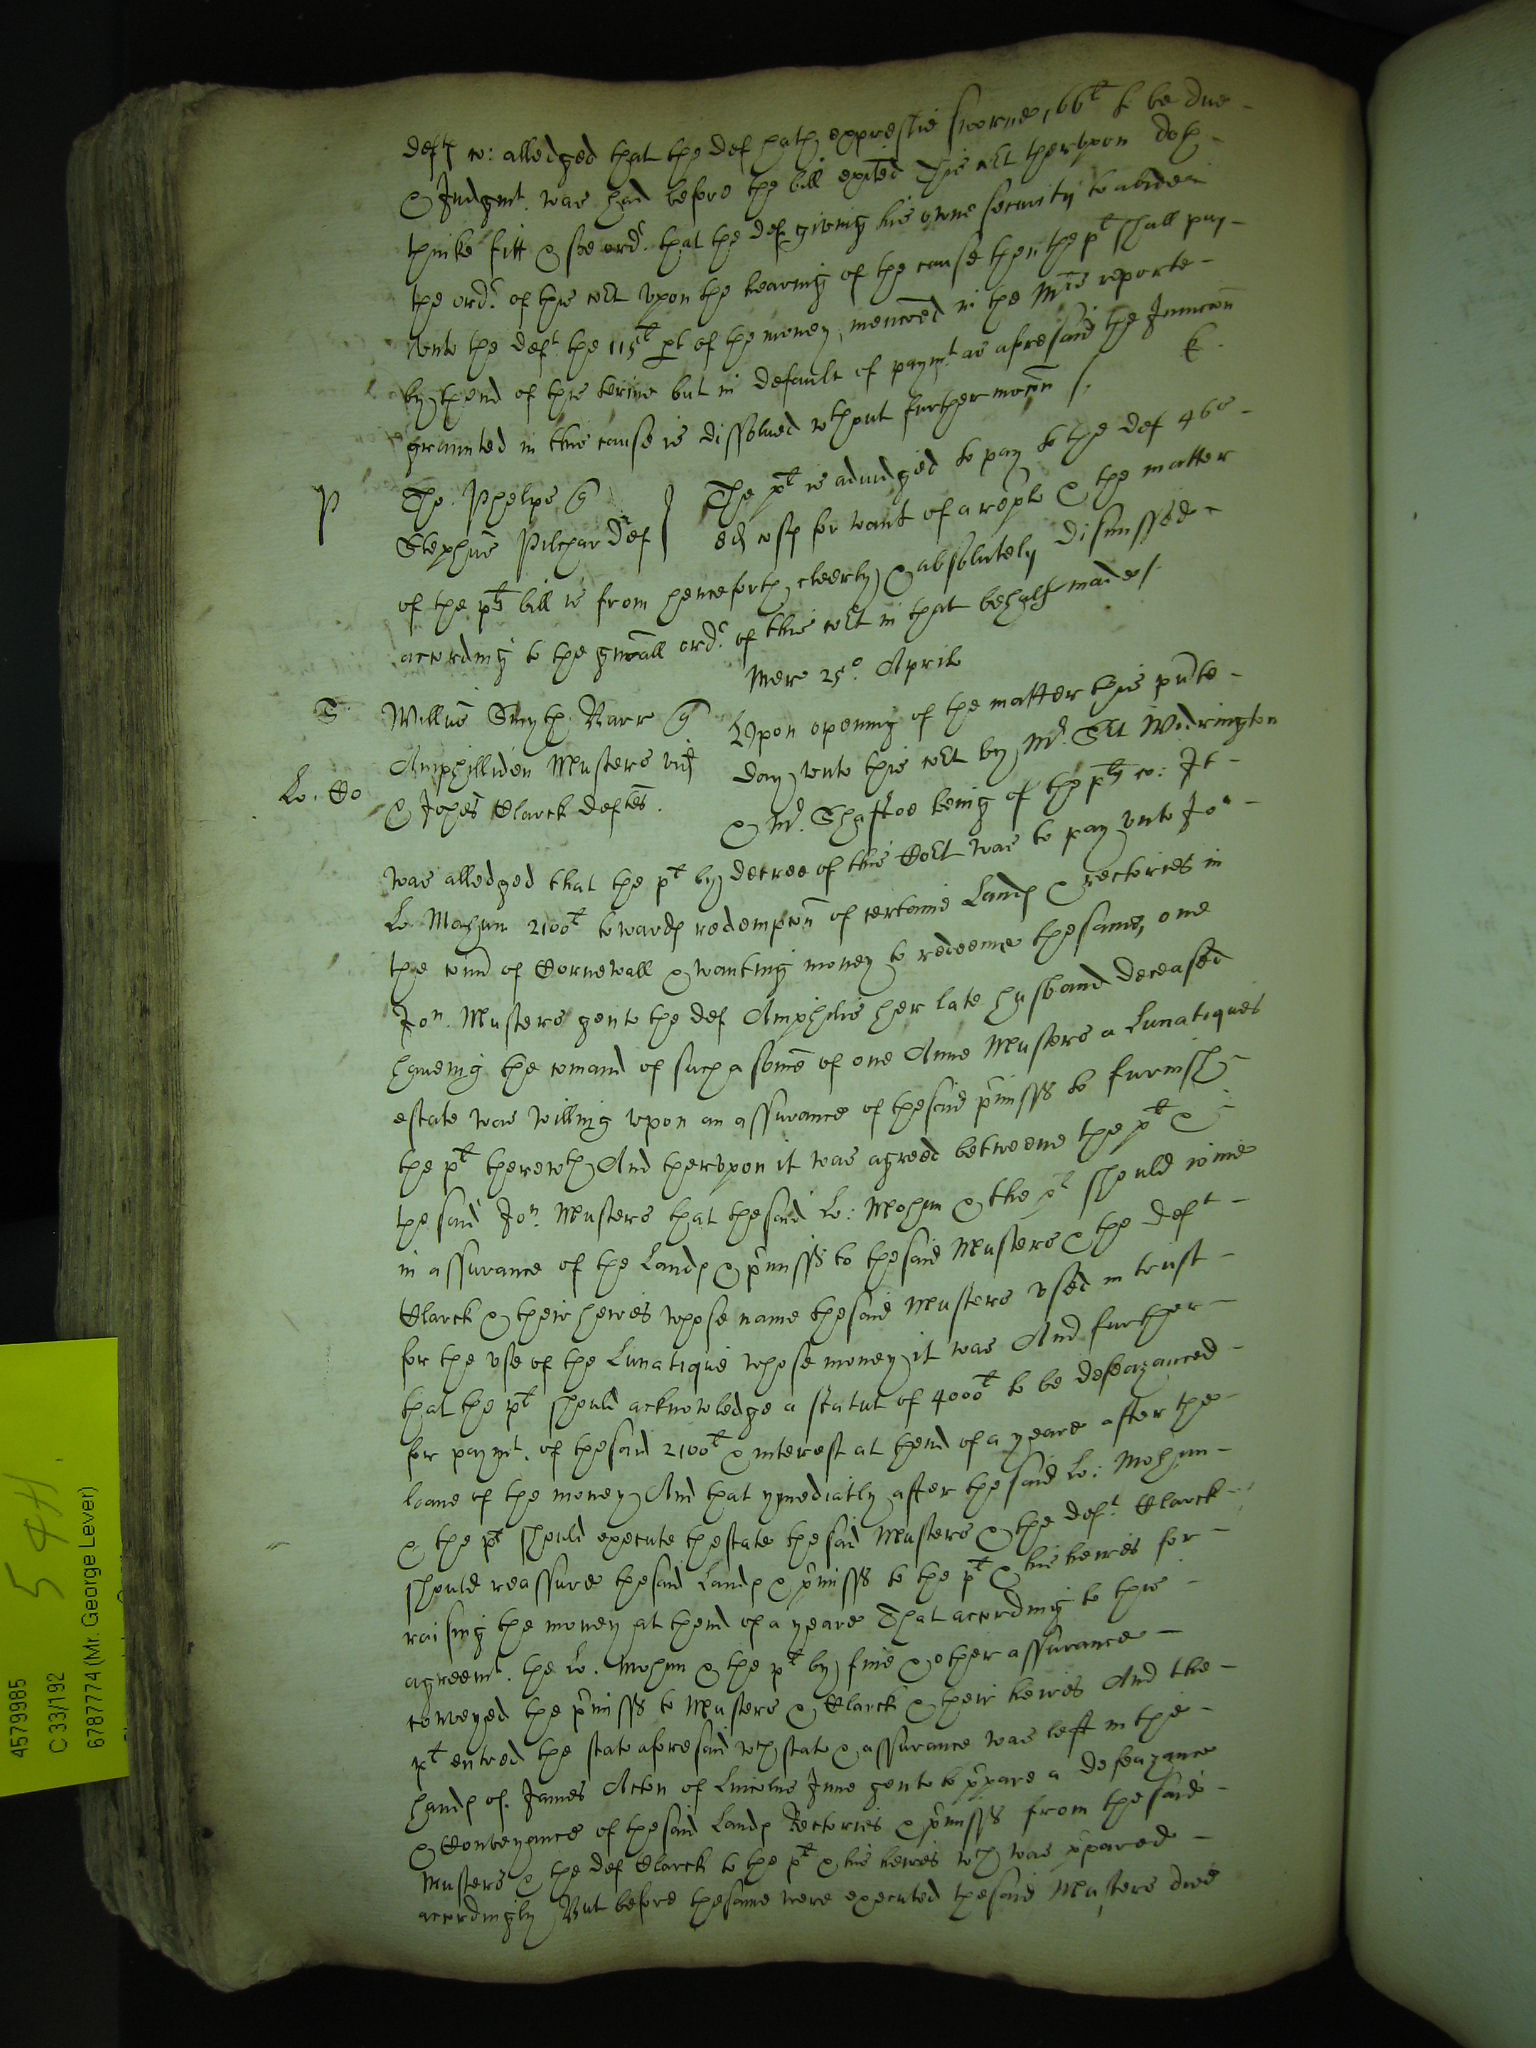 deft co: alledged that the def hath expreslie sworne 166l to be due
& Judgmt. was had before the bill exited This Cot therupon doth
thinke fitt & soe ordr. that the def giving his owne security to abide
the ordr. of this cot upon the hearing of the cause then the plt shall pay
unto the deft the 115l pt of the money mencoed in the Mrs reporte
by thend of this terme but in default of paymt as aforesaid the Iniuncon
graunted in this cause is dissolved wthout further mocon /. k.
P Tho. Phelps q
Stephus Pilchar def
The plt is adiudged to pay to the def 46s
8d costs for want of a reply & the matter
of the plts bill is from henceforth cleerly & absolutely dismissed
according to the gnrall ordr. of this cot in that behalf made /.
Mer 25o Aprilo
S Willus Smyth Barr q
Amphilliden Musters vid
& Johes Clarck deftes.
Lo. Co
Upon opening of the matter this pnte
day unto this cot by Mr. Sct Widrington
& Mr. Shaftoe being of the plts co: It
was alledged that the plt by decree of this Cort was to pay unto Jon
Lo Mohun 2100l towards redempcon of certaine Lands & rectories in
the coun of Cornewall & wanting money to redeeme the same, one
Jon. Musters gent the def Amphilis her late husband deceased
haveing the comand of such a some of one Anne Musters a Lunatiques
estate was willing upon an assurance of the said pmisss to furnish
the plt therewth And therupon it was agreed betweene the plt &
the said Jon. Musters that the said Lo: Mohun & the plt should ioine
in assurance of the Lands & pmisss to the said Musters & the deft
Clarck & their heires whose name the said Musters used in trust
for the use of the Lunatique whose money it was And further
that the plt should acknowledge a statut of 4000l to be defeazanced
for paymt. of the said 2100l & interest at thend of a yeare after the
loane of the money And that ymediatly after the said Lo: Mohun
& the plt should execute thestate the said Musters & the deft. Clarck
should reassure the said Lands & pmisss to the plt & his heires for
raising the money at thend of a yeare That according to this
agreemt. the Lo. Mohun & the plt by fine & other assurance
conveyed the pmisss to Musters & Clarck & their heires And the
plt entred the state aforesaid wch state & assurance was left in the
hands of. James Acton of Lincolns Inne gent to ppare a defeazance
& Conveyance of the said Lands Rectories & pmisss from the said
Musters & the def Clarck to the plt & his heires wch was ppared
accordingly But before the same were executed the said Musters died
544.
4579985
C 33/192
6787774 (Mr. George Lever)